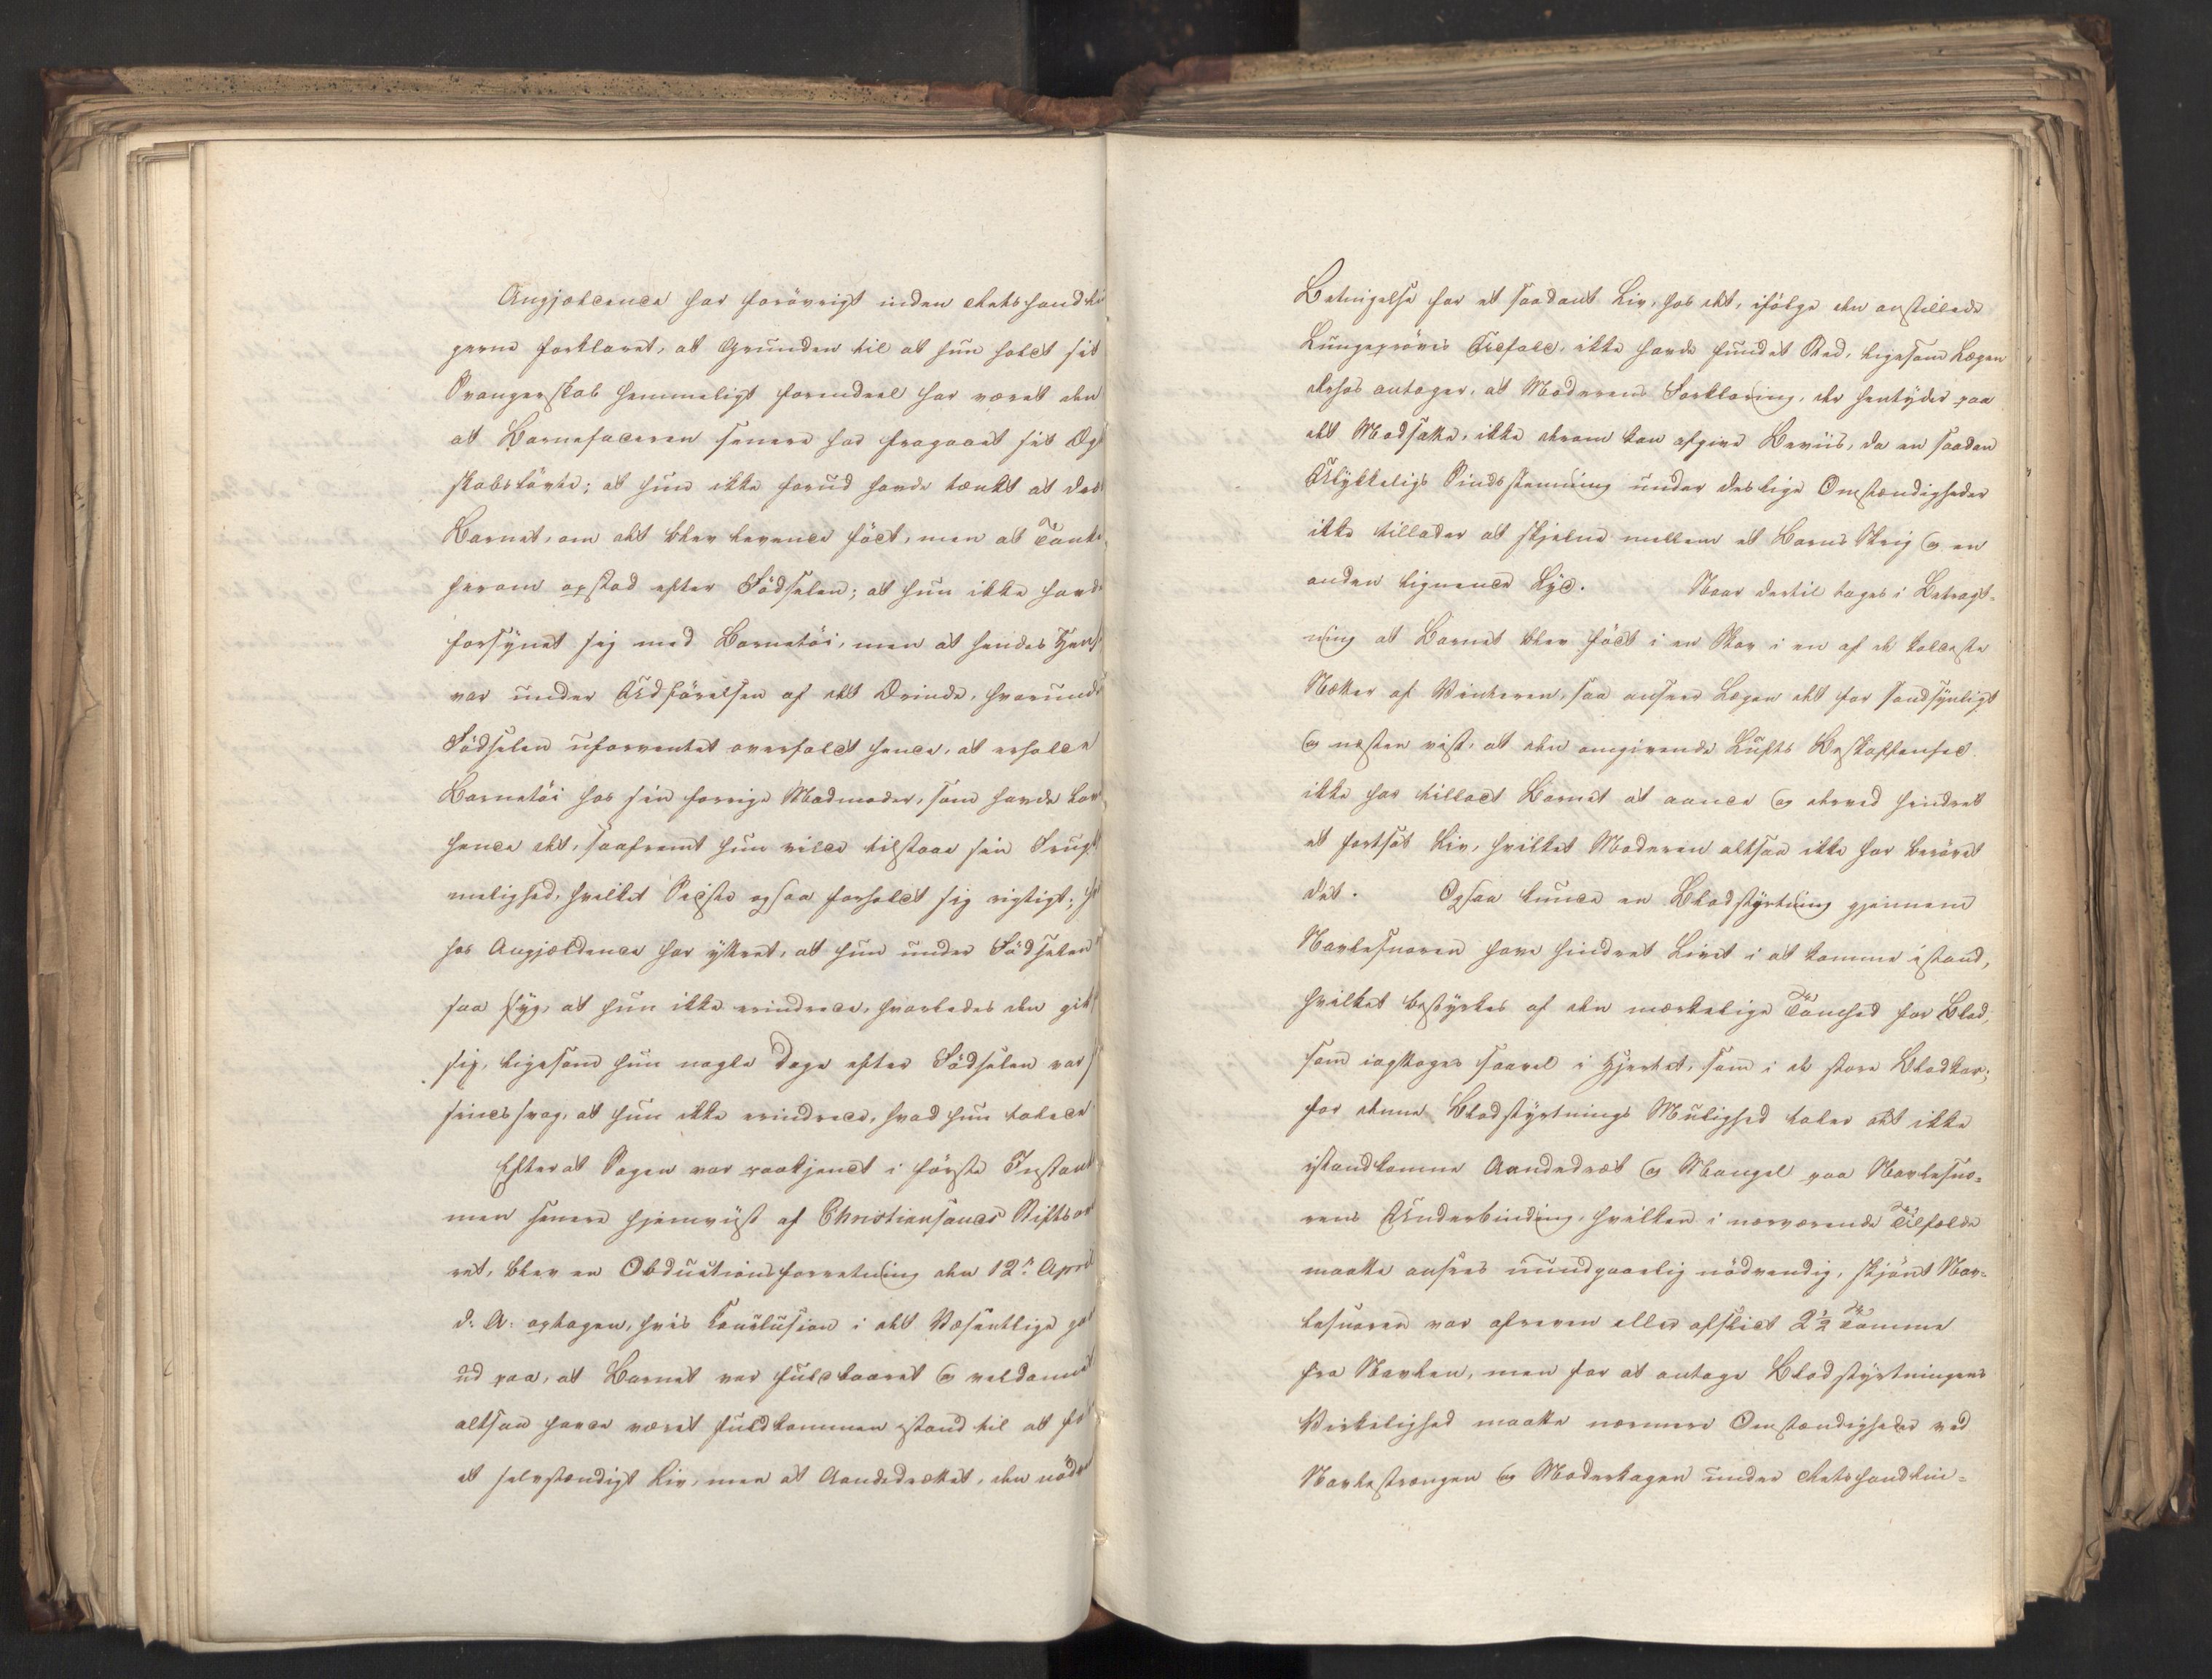 Angjældende har forövrigt inden Retshandlin
gerne forklaret, at Grunden til at hun holdt sit
Svangerskab hemmeligt foruden har været den
at Barnefaderen senere har fragaaet sit Ægte
skabslövte; at hun ikke forud havde tænkt at dræ
Barnet, om det blev levende födt, men at Tanke
herom opstod efter Födselen; at hun ikke havde
forsynet sig med Barnetöi, men at hendes Hensi
var under Udförelsen af det Ærinde, hvorunder
Födselen uforventet overfaldt hende, at erholde
Barnetöi hos sin forrige Madmoder, som havde lov
hende det, saafremt hun vilde tilstaae sin Frugt
melighed, hvilket Sidste ogsaa forholdt sig rigtigt;
hos Angjældende har yttret, at hun under Födselen
saa syg, at hun ikke erindrede, hvorledes den gik
sig, ligesom hun nogle Dage efter Födselen var
sindssvag, at hun ikke erindrede, hvad hun talede
Efterat Sagen var paakjendt i förste Instant
men senere hjemviist af Christiansands Stiftsov
ret, blev en Obductionsforretning den 12te April
d. A. optagen, hvis Conclusion i det Væsentlige gaa
ud paa, at Barnet var fuldbaaret og veldannet
altsaa havde været fuldkommen istand til at fö
et selvstændigt Liv, men at Aandedrættet, den nödve
Betingelse for et saadant Liv, hos det, ifölge den anstillede
Lungepröves Udfald, ikke havde fundet Sted, ligesom Lægen
derhos antager, at Moderens Forklaring, der hentyder paa
det Modsatte, ikke derom kan afgive Beviis, da en saadan
Ulykkeligs Sindsstemning under deslige Omstændigheder
ikke tillader at skjelne mellem et Barns Skrig og en
anden lignende Lyd. Naar dertil tages i Betragt-
ning at Barnet blev födt i en Skov i en af de koldeste
Nætter af Vinteren, saa ansees Lægen det for sandsynligt
og næsten vist, at den omgivende Lufts Beskaffenhed
ikke har tilladt Barnet at aande og derved hindret
et fortsat Liv, hvilket Moderen altsaa ikke har berövet
det. Ogsaa kunde en Blodstyrtning gjennem
Navlesnoren have hindret Livet i at komme istand,
hvilket bestyrkes af den mærkelige Tomhed for Blod,
som iagttages saavel i Hjertet, som i de store Blodkar;
for denne Blodstyrtnings Mulighed taler det ikke
istandkomne Aandedræt og Mangel paa Navlesno-
rens Underbinding, hvilken i nærværende Tilfælde
maatte ansees uundgaaelig nödvendig, skjönt Nav-
lesnoren var afreven eller afslidt 2½ Tomme
fra Navlen, men for at antage Blodstyrtningens
Virkelighed maatte nærmere Omstændigheder ved
Navlestrængen og Moderkagen under Retshandlin-